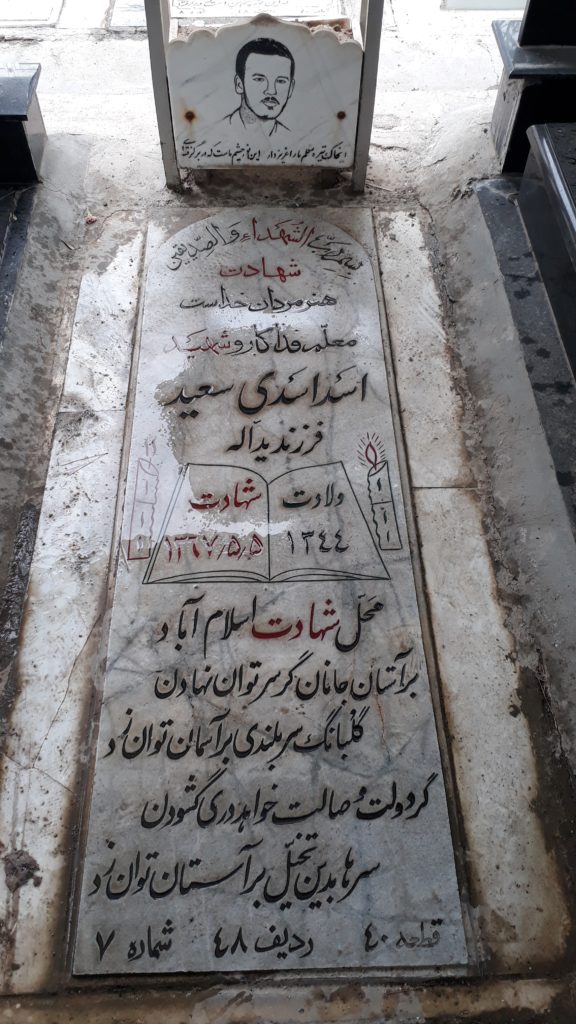 ای خاک تیره معلم ما را عزیز دار این نور چشم ماست که در بر گرفته‌ای
بسم رب الشهداء والصدیقین
شهادت
هنر مردان خداست
معلم فداکار و شهید
اسد اسدی سعید
فرزند یداله
ولادت شهادت
۱۳۴۴ ۱۳۶۷/۵/۵
محل شهادت اسلام آباد
بر آستان جانان گر سر توان نهادن
گلبانگ سربلندی بر آسمان توان زد
گر دولت وصالت خواهد دری گشودن
سرها بدین تخیّل بر آستان توان زد
قطعه ۴۰ ردیف ۴۸ شماره ۷